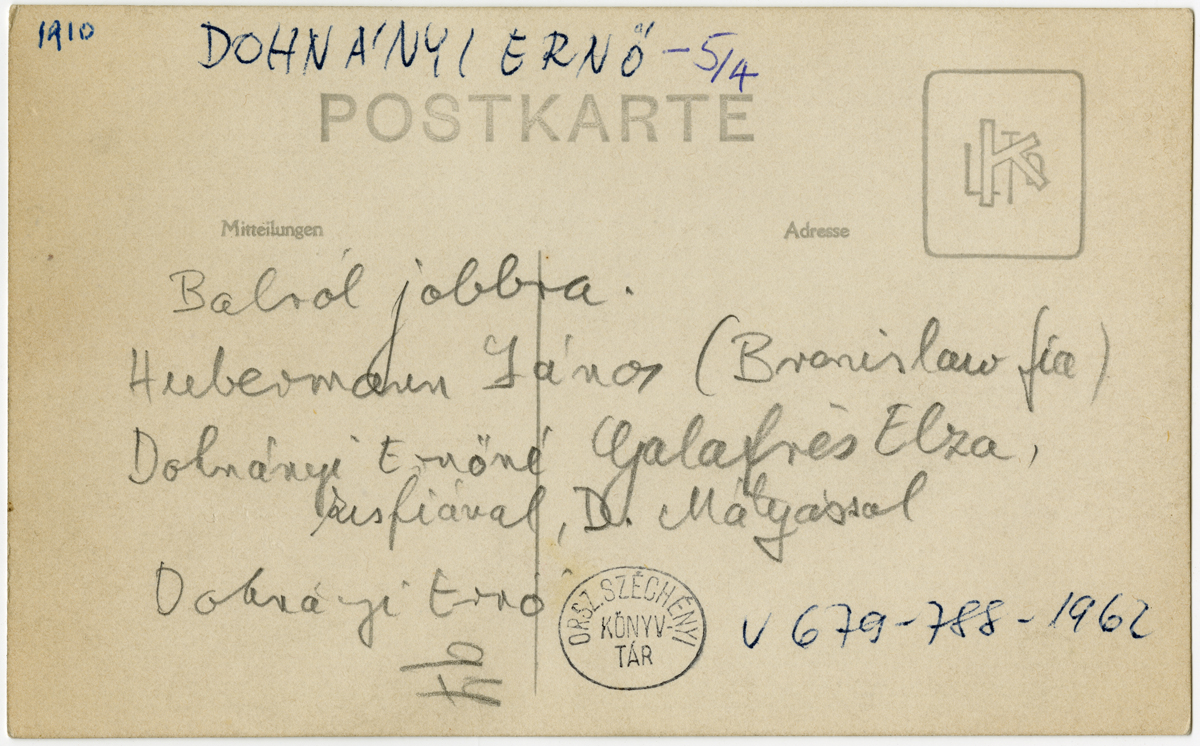 1910
DOHNÁNYI ERNŐ - 5/4
POSTKARTE
Mitteilungen
Adresse
Balról jobbra.
Hubermann János (Bronislaw fia)
Dohnányi Ernőné Galafrès Elza,
kisfiával, D. Mátyással
Dohnányi Ernő
ORSZ. SZÉCHÉNYI
KÖNYV-
TÁR
V 679-788-1962